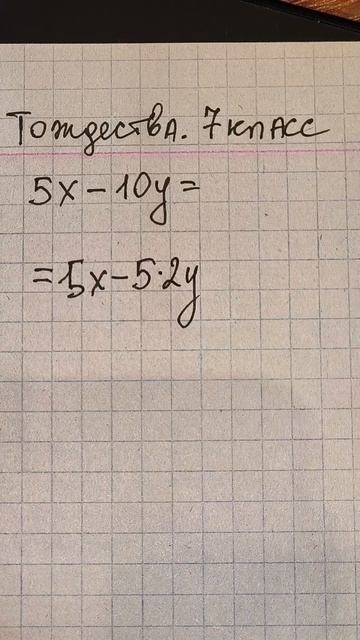 Тождества. 7 класс
5x − 10y =
= 5x − 5·2y